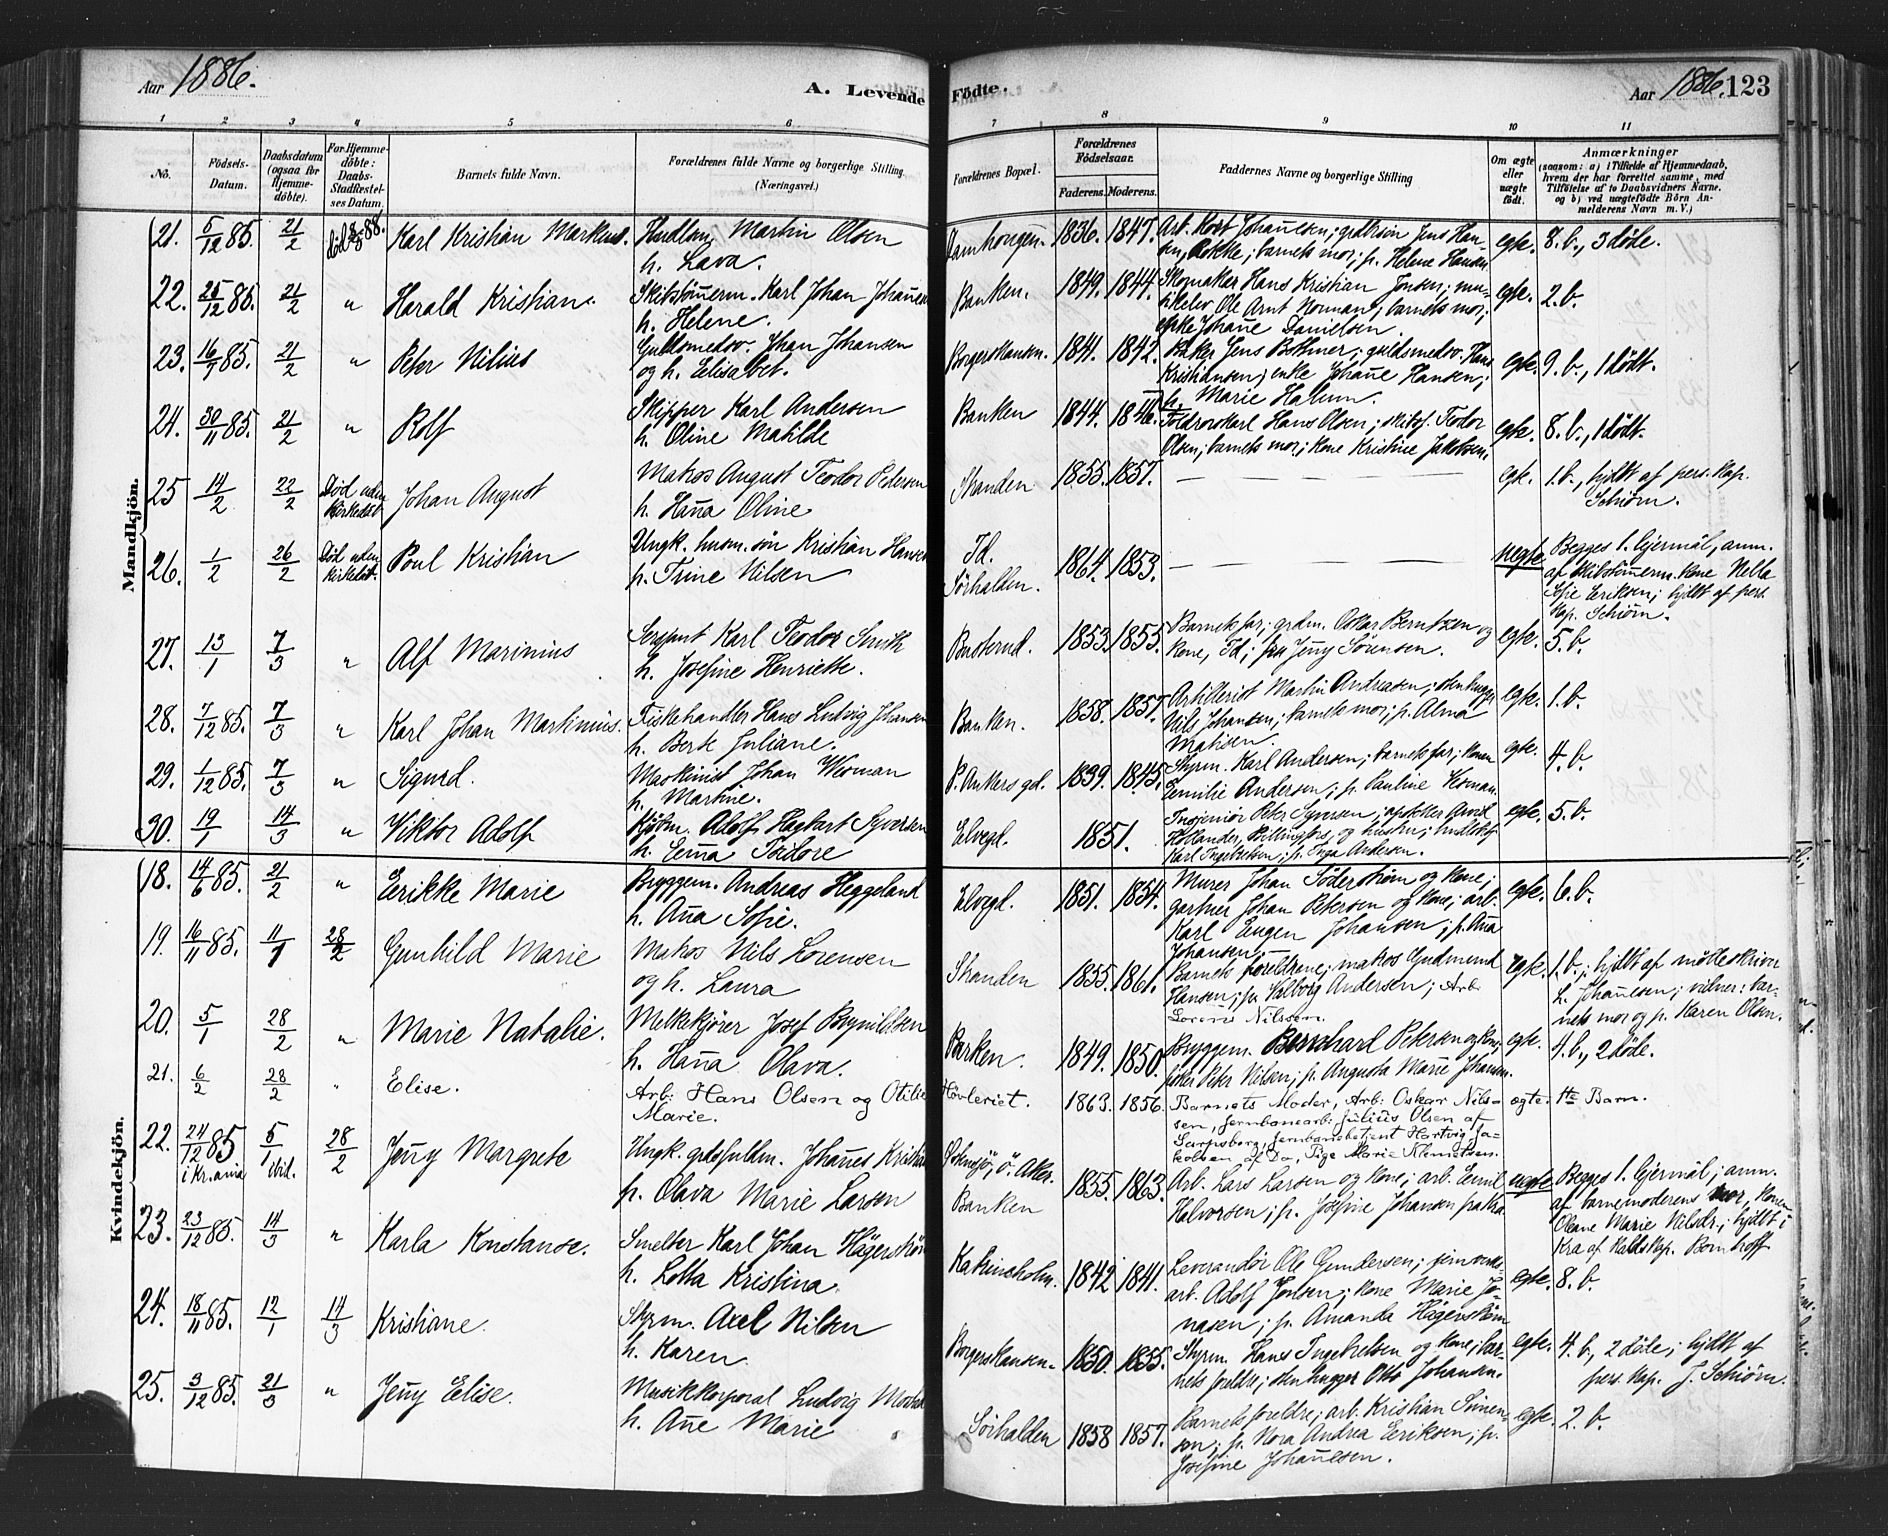 Aar 1886.
A. Levende Födte.
Aar 1886. 123
1 2 3 4 5 6 7 8 9 10 11
No.
Födsels-Datum.
Daabsdatum (ogsaa for Hjemme-döbte).
For Hjemme-döbte: Daabs-Stadfæstel-ses Datum.
Barnets fulde Navn.
Forældrenes fulde Navne og borgerlige Stilling (Næringsvei.)
Forældrenes Bopæl.
Forældrenes Födselsaar.
Faderens. Moderens.
Faddernes Navne og borgerlige Stilling
Om ægte eller uægte födt.
Anmærkninger
(saasom: a) i Tilfælde af Hjemmedaab, hvem der har forrettet samme, med Tilföielse af to Daabsvidners Navne, og b) ved uægtefödte Börn An-melderens Navn m.V.)
Mandkjön.
21. 5/12 85. 21/2 Karl Kristian Markus. Martin Olsen
h. Lava.
1836. 1847. Arb. Johannesen; Jens Han-
sen, Bakke; barnets mor; p. Helene Hansen
egte. 8. b., 3 döde.
22. 25/12 85. 21/2 " Harald Kristian. Skibstömerm. Karl Johan Johansen
h. Helene.
Banken. 1849. 1844. Skomaker Hans Kristian Jensen; mu-
sikelev Ole Arnt Norman; barnets mor;
enke Johane Danielsen
egte. 2. b.
23. 16/7 85. 21/2 " Peter Nilius Guldsmedsv. Johan Johansen
og h. Elisabet.
Borgerskansen. 1841. 1842. Baker Jens Bothner; guldsmedsv. Hans
Kristiansen; enke Johane Hansen;
p. Marie Halum.
egte. 9. b., 1 dödt.
24. 30/11 85. 21/2 " Rolf Skipper Karl Andersen
h. Oline Matilde
Banken 1844. 1846. Toldroskarl Hans Olsen; skibsf. Teodor
Olsen; barnets mor; kone Kristine Jakobsen.
egte. 8. b., 1 dödt.
25 14/2 22/2 Död uden kirkedåb Johan August Matros August Teodor Petersen
h. Hana Oline
Stranden 1855. 1857. — — —
egte. 1. b., hjdbt af pers. kap.
Schiörn.
26. 1/2 26/2 Död uden kirkedåb. Poul Kristian Ungk. husm. sön Kristian Hansen
p. Trine Nilsen
Id.
Sörhalden. 1864. 1853. — — —
uegte Begges 1. leiermål, anm.
af skibstömerm. kone Nella
Sofie Eriksen; hjdbt af pers.
kap. Schiörn.
27. 13/1 7/3 " Alf Marinius Sersjant Karl Teodor Smith
h. Josefine Henriette.
Busterud. 1853. 1855. Barnets far; grdm. Oskar Berntzen og
kone, Id; frk Jenny Sörensen.
egte. 5. b.
28. 7/12 85. 7/3 " Karl Johan Martinius. Fiskehandler Hans Ludvig Johansen
h. Berte Juliane.
Banken. 1858. 1857. Artillerist Martin Andreasen; stenhugger
Nils Johansen; barnets mor; p. Alma
Matisen.
egte. 1. b.
29. 1/12 85. 7/3 " Sigurd. Maskinist Johan Wesman
h. Martine.
P. Ankers gd. 1839. 1845. Styrm. Karl Andersen; barnets far; konen
Emilie Andersen; p. Pauline Wesman.
egte. 4. b.
30. 19/1 14/3 " Viktor Adolf Kjöbm. Adolf Hagbart Syversen
h. Ema Isidore
Elvegd. 1851. Insjeniör Peter Syversen; apoteker Arvid
Hollander, og hustru;
Karl Ingebretsen; p. Inga Andersen.
egte. 5. b.
Kvindekjön.
18. 14/6 85. 21/2 " Erikke Marie Bryggem. Andreas Heggeland
h. Ana Sofie.
Elvegd. 1851. 1854. Murer Johan Söderström og kone;
gartner Johan Petersen og kone; arb.
Karl Eugen Johansen; p. Ana
Johansen.
egte. 6. b.
19. 16/11 85. 11/1 28/2 Gunhild Marie Matros Nils Lorensen
og h. Laura
Stranden 1855. 1861. Barnets foreldrene; matros Gudmund
Hansen; p. Valborg Andersen; Arb.
Lorens Nilssen.
egte. 1. b.; hjdbt af mölleskriver
L. Johannesen; vidner: bar-
nets mor og p. Karen Olsen.
20. 5/1 28/2 " Marie Natalie. Melkekjörer Josef Brynildsen
h. Hana Olava.
Banken. 1849. 1850. Bryggem. Bernhard Petersen og kone;
fisker Peter Nilsen; p. Augusta Marie Johansen.
egte. 4. b., 2 döde.
21. 6/2 28/2 " Elise. Arb: Hans Olsen og Otilie
Marie.
Hövleriet. 1863. 1856. Barnets Moder, Arb: Oskar Nils-
sen, Jernbanearb: Julius Olsen af
Sarpsborg, Jernbanebetjent Hartvig Ja-
kobsen af Do, Pige Marie Klemetsen.
ægte. 1te Barn.
22. 24/12 85 i Kr.ania 5/1 ibid. 28/2 Jenny Margrete Ungk. Johanes Kristian
p. Olava Marie Larsen
Sognsjö, ö. Aker.
Banken 1855. 1863. Arb. Lars Larsen og kone; arb. Emil
Halvorsen; p. Josefine Johansen fra Kra.
uegte Begges 1. leiermål; anm.
af barnemoderens mor, konen
Oleane Marie Nilsdr.; hjdbt i
Kra af Resds kap. Bomhoff
23. 23/12 85. 14/3 " Karla Konstanse. Smelter Karl Johan Hägerström
h. Lotta Kristina.
Katrineholm. 1842 1841. Leverandör Ole Gundersen; jernverks-
arb. Adolf Jonsen; kone Marie Jo-
nasen; p. Amanda Hägerström
egte. 8. b.
24. 18/11 85. 12/1 14/3 Kristiane. Styrm. Axel Nilsen
h. Karen.
Borgerskansen. 1850. 1855. Styrm. Hans Ingebretsen og kone; bar-
nets foreldre; stenhugger Otto Johansen.
egte. 4. b, 2 döde; hjdbt af
pers. kap. J. Schiörn.
25. 3/12 85. 21/3 " Jenny Elise. Musikkorporal Ludvig
h. Ane Marie
Sörhalden 1858 1857. Barnets foreldre; arb. Kristian Simen-
sen; p. Nora Andrea Eriksen; p.
Josefine Johannesen.
egte. 2. b.